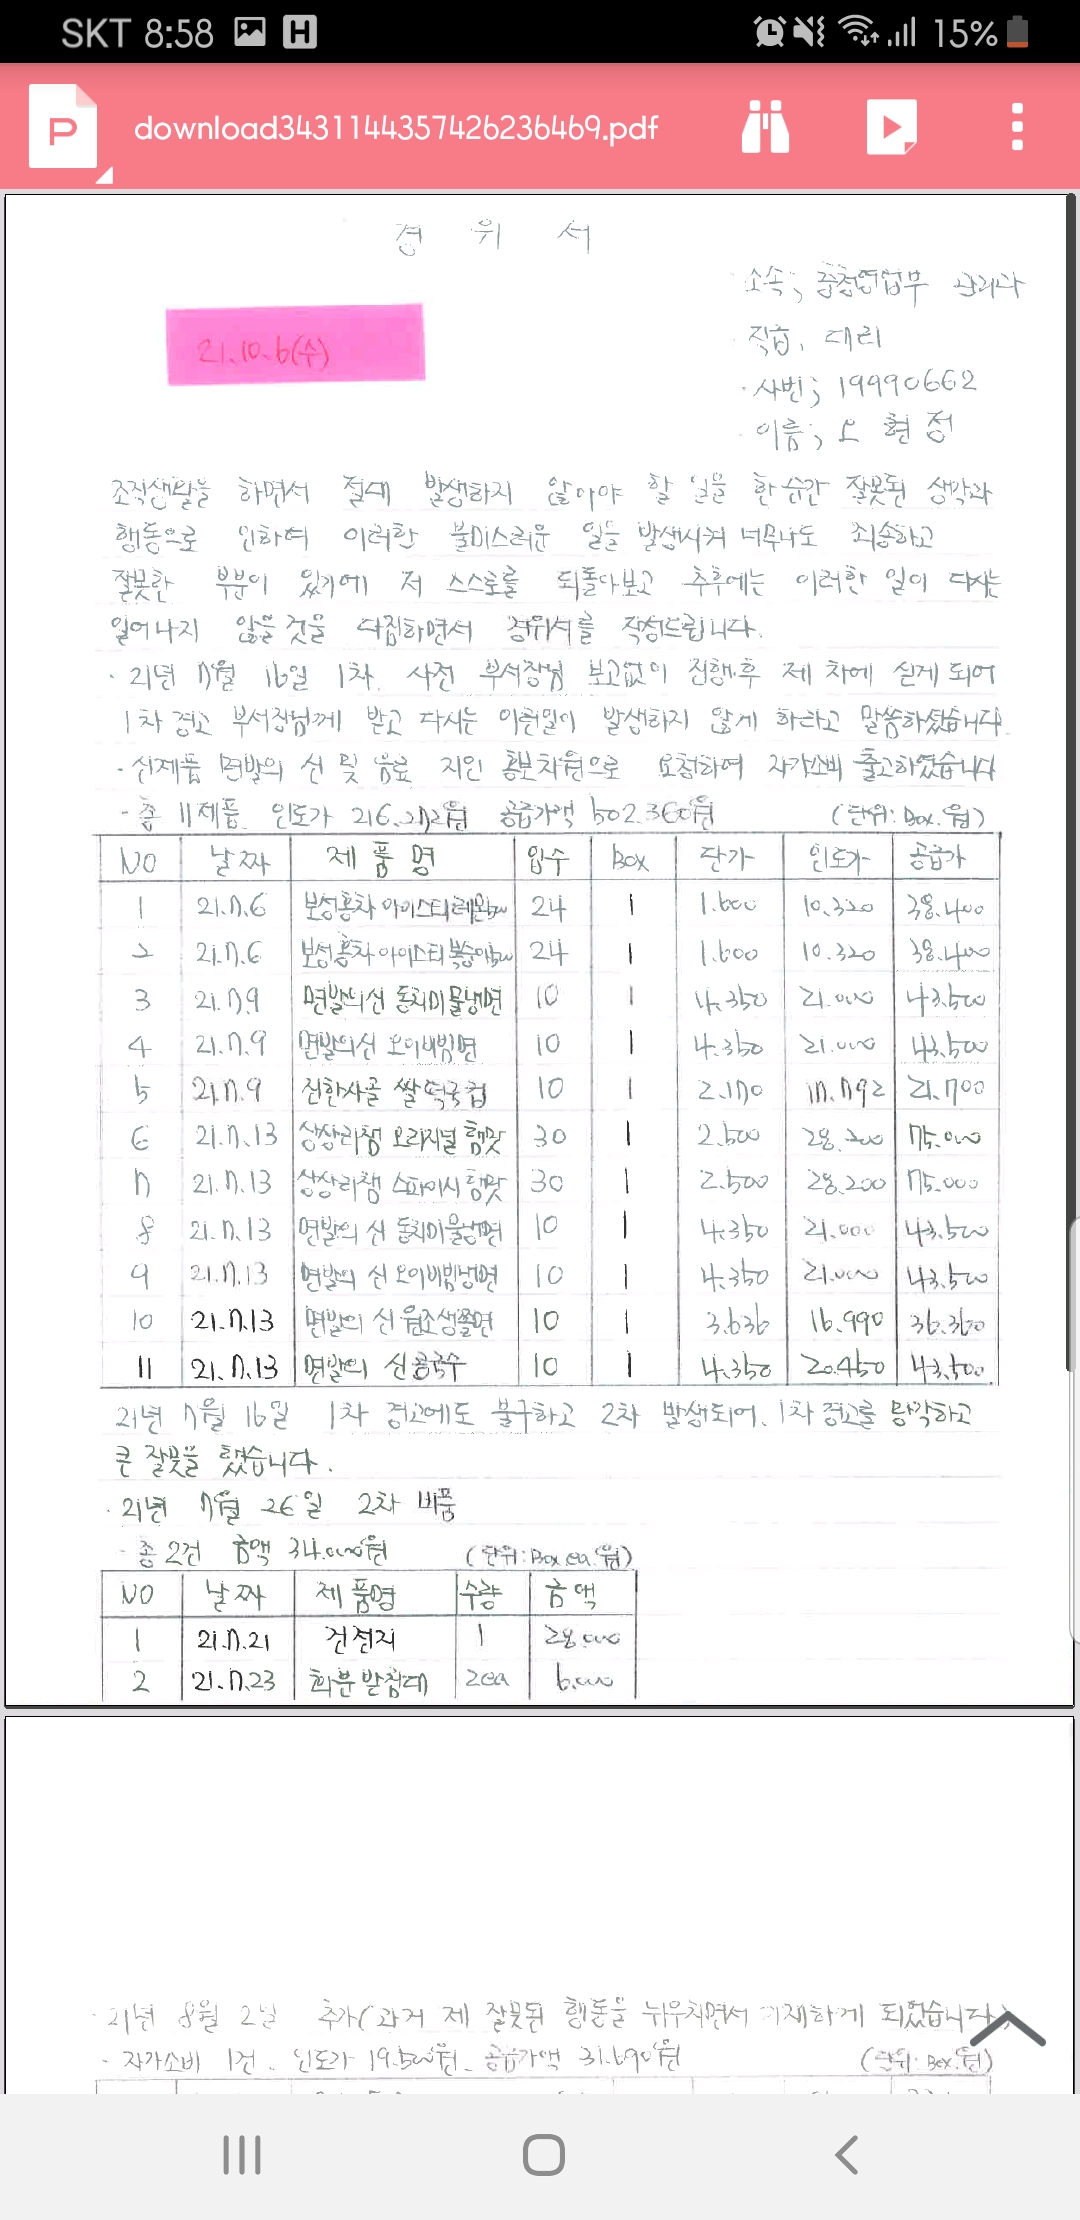 SKT 8:58 H 15%
P download3431144357426236469.pdf
경 위 서
소속; 중청영업부 관리과
21.10.6(수)
직급, 대리
·사번; 19990662
이름; 오 현 정
조직생활을 하면서 절대 발생하지 않아야 할 일을 한순간 잘못된 생각과
행동으로 인하여 이러한 불미스러운 일을 발생시켜 너무나도 죄송하고
잘못한 부분이 있기에 저 스스로를 되돌아보고 추후에는 이러한 일이 다시는
일어나지 않을것을 다짐하면서 경위서를 작성드립니다.
· 21년 7월 16일 1차. 사전 부서장님 보고없이 진행후 제 차에 싣게되어
1차경고 부서장님께 받고 다시는 이런일이 발생하지 않게 하라고 말씀하셨습니다.
· 신제품 면발의 신 및 음료 지인 홍보차원으로 요청하여 자가소비 출고하였습니다
- 총 11제품. 인도가 216.272원 공급가액 502.360원 (단위: Box.원)
NO 날짜 제품명 입수 Box 단가 인도가 공급가
1 21.7.6 보성홍차 아이스티레몬 24 1 1.600 10.320 38.400
2 21.7.6 보성홍차 아이스티 복숭아 24 1 1.600 10.320 38.400
3 21.7.9 면발의신 동치미물냉면 10 1 4.350 21.000 43.500
4 21.7.9 면발의신 오이비빔면 10 1 4.350 21.000 43.500
5 21.7.9 진한사골 쌀떡국컵 10 1 2.170 17.792 21.700
6 21.7.13 상상리챔 오리지널 햄맛 30 1 2.500 28.200 75.000
7 21.7.13 상상리챔 스파이시 햄맛 30 1 2.500 28.200 75.000
8 21.7.13 면발의 신 동치미물냉면 10 1 4.350 21.000 43.500
9 21.7.13 면발의 신 오이비빔냉면 10 1 4.350 21.000 43.500
10 21.7.13 면발의 신 원조생쫄면 10 1 3.636 16.990 36.360
11 21.7.13 면발의 신 콩국수 10 1 4.350 20.450 43.500
21년 7월 16일 1차 경고에도 불구하고 2차 발생되어. 1차경고를 망각하고
큰 잘못을 했습니다.
· 21년 7월 26일 2차 비품
- 총 2건 금액 34.000원 (단위: Box.ea.원)
NO 날짜 제품명 수량 금액
1 21.7.21 건전지 1 28.000
2 21.7.23 화분받침대 2ea 6.000
· 21년 8월 2일 추가(과거 제 잘못된 행동을 뉘우치면서 기재하게 되었습니다.)
- 자가소비 1건. 인도가 19.500원. 공급가액 31.690원 (단위: Box.원)